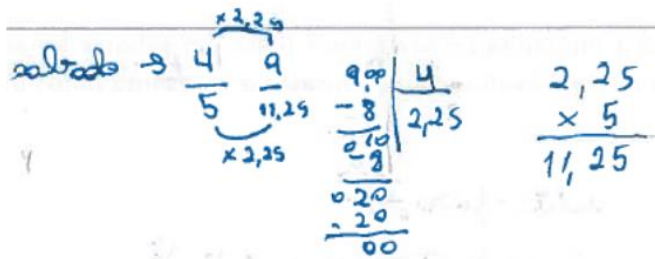 x 2,25
sabado → 4/5 9/11,25
x 2,25
9,00 | 4
- 8 2,25
010
- 8
020
- 20
00
2,25
x 5
11,25